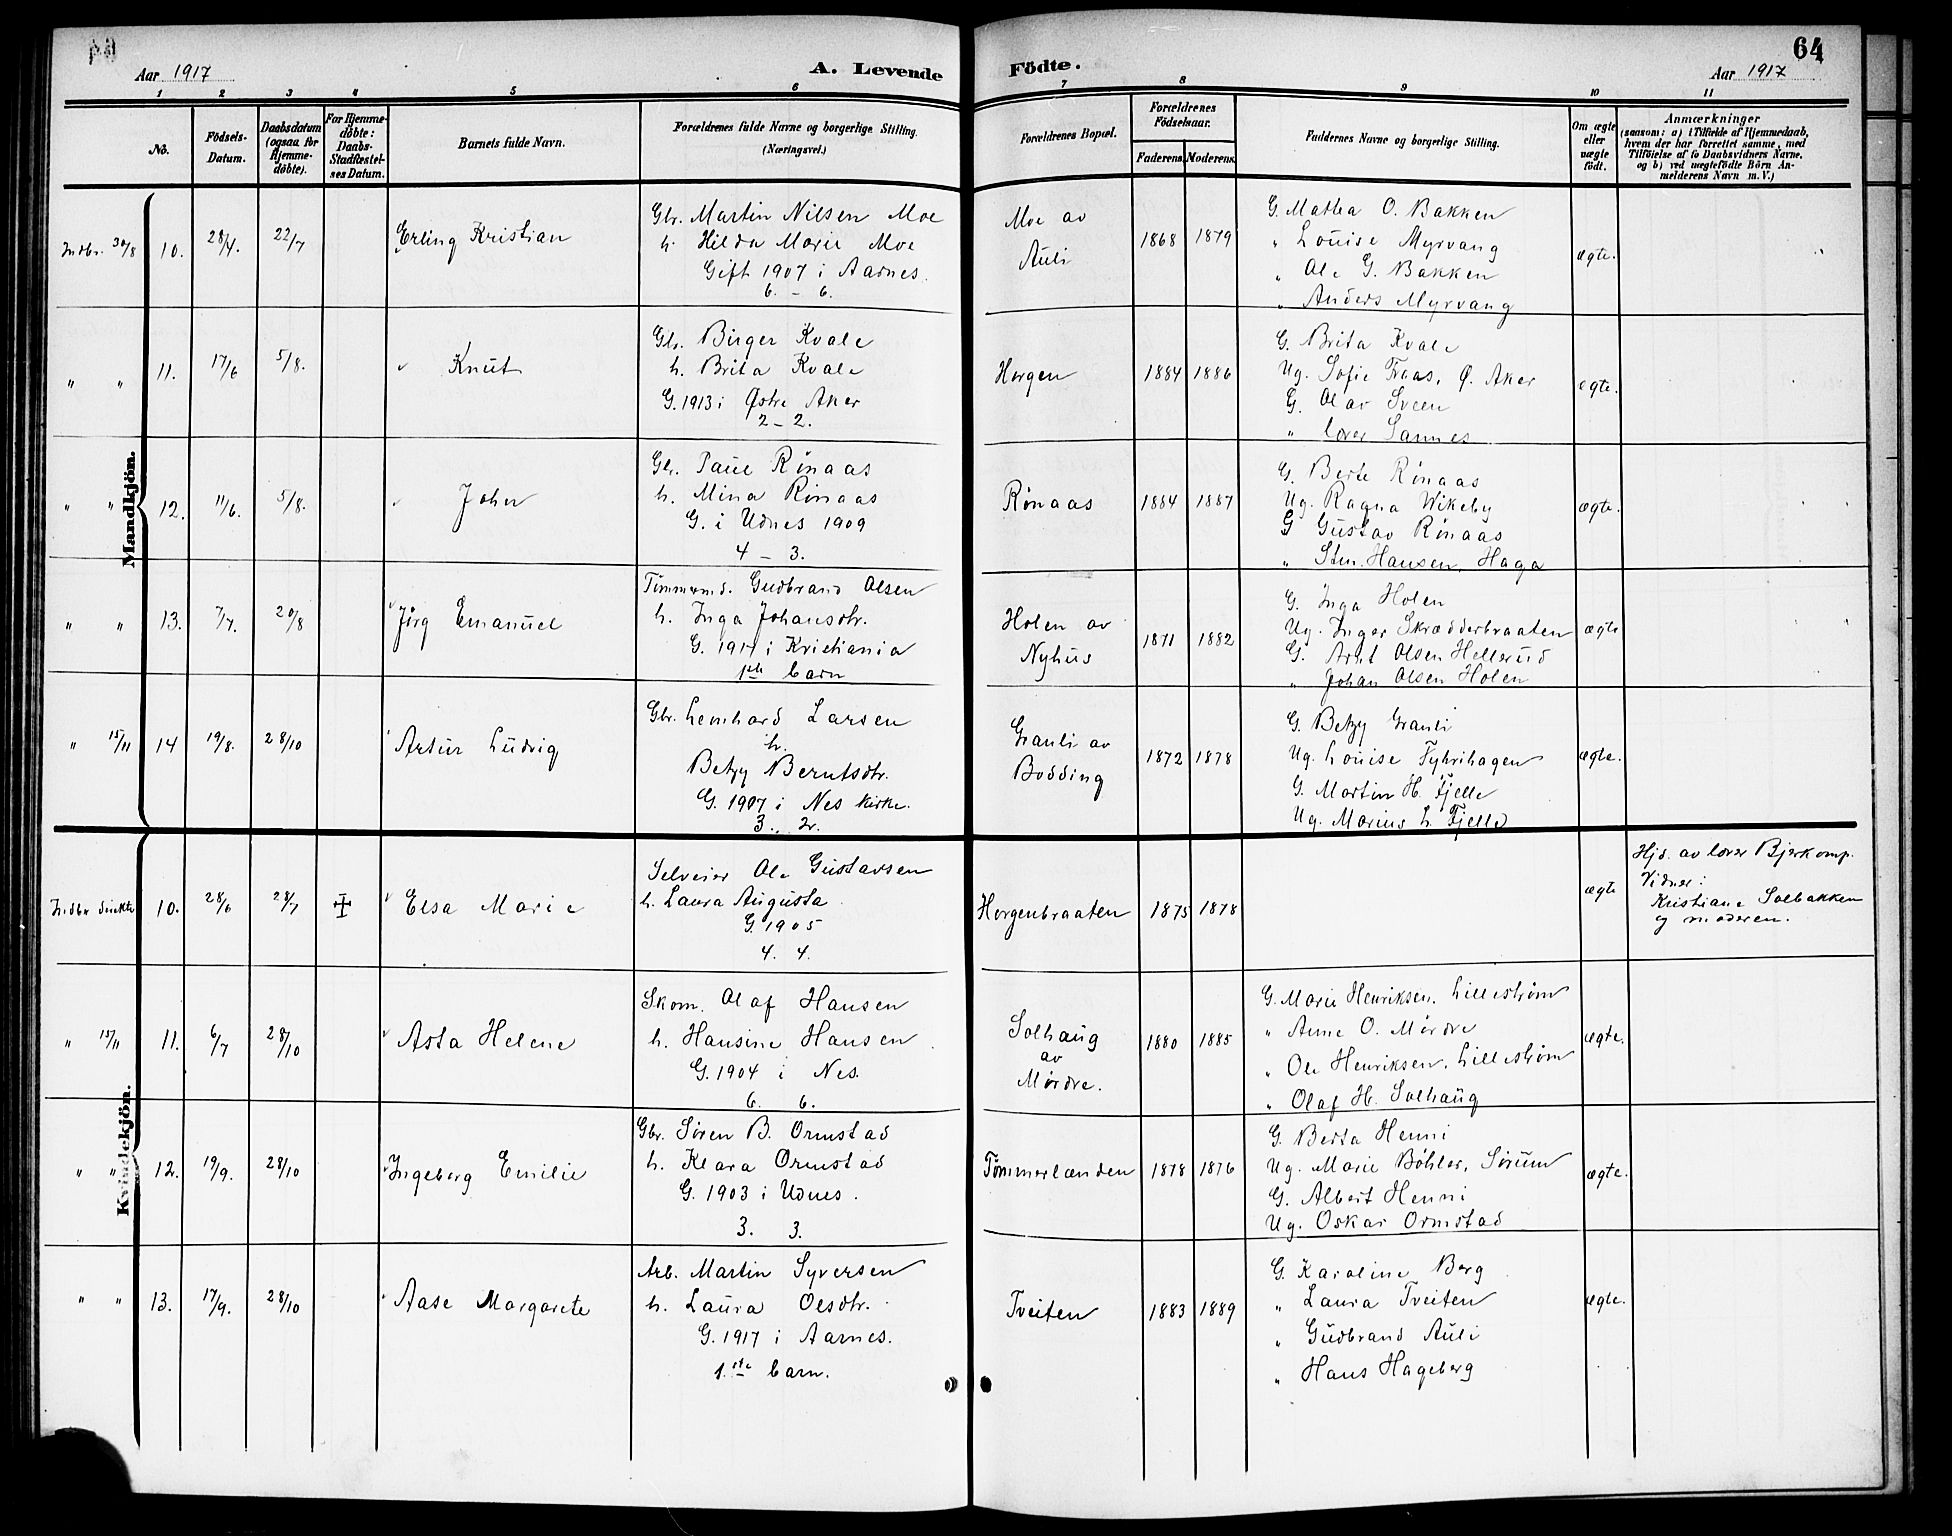 64
Aar 1917
A. Levende Födte.
Aar 1917
1 2 3 4 5 6 7 8 9 10 11
No.
Födsels-Datum.
Daabsdatum (ogsaa for Hjemme-døbte).
For Hjemme-døbte: Daabs-Stadfæstel-ses Datum.
Barnets fulde Navn.
Forældrenes fulde Navne og borgerlige Stilling.
(Næringsvei.)
Forældrenes Bopæl.
Forældrenes Födselsaar.
Faderens. Moderens.
Faddernes Navne og borgerlige Stilling.
Om ægte eller uægte født.
Anmærkninger
(saasom: a) i Tilfælde af Hjemmedaab,
hvem der har forrettet samme, med
Tilföielse af to Daabsvidners Navne.
og b) ved uægtefødte Börn An-
melderens Navn m. V.)
Mandkjön.
Indbr. 30/8 10. 28/4. 22/7 Erling Kristian
Gbr. Martin Nilsen Moe
h. Hilda Marie Moe
Gift 1907 i Aarnes.
6. - 6.
Moe av
Auli
1868 1879
G. Mathea O. Bakken
" Louise Myrvang
" Ole G. Bakken
" Anders Myrvang
ægte.
" " 11. 17/6 5/8. Knut
Gbr. Birger Kvale
h. Brita Kvale
G. 1913 i Østre Aker
2 - 2.
Horgen
1884 1886
G. Brita Kvale
Ug. Sofie Traas, Ø. Aker
G. Olav Sveen
" lærer Sannes
ægte.
" " 12. 11/6. 5/8. John
Gbr. Paul Rønaas
h. Mina Rønaas
G. i Udnes 1909
4 - 3.
Rønaas
1884 1887
G. Berte Rønaas
Ug. Ragna Wikeby
G Gustav Rønaas
" Stm. Hansen Haga
ægte.
" " 13. 7/7. 20/8 Jørg Emanuel
Tømmermd. Gudbrand Olsen
h. Inga Johansdtr.
G. 1917 i Kristiania
1ste barn
Holen av
Nyhus
1871 1882
G. Inga Holen
Ug. Inger Skrædderbraaten
G. Arnt Olsen Hellerud
" Johan Olsen Holen
ægte
" 15/11 14 19/8. 28/10 Artur Ludvig
Gbr. Lenhard Larsen
h.
Betzy Berntsdtr.
G. 1907 i Nes kirke.
3. 2.
Granli av
Bodding
1872 1878
G. Betzy Granli
Ug. Louise Fyhrihagen
G. Martin H. Fjelle
Ug. Marius L. Fjelle
ægte.
Kvindekjön.
Indbr direkte 10. 28/6 28/7 Elsa Marie
Selveier Ole Gustavsen
h. Laura Augusta
G. 1905
4. 4.
Horgenbraaten
1875 1878
ægte
Hjd. av lærer Bjerkamp.
Vidner:
Kristiane Solbakken
og moderen.
" 15/11 11. 6/7 28/10 Asta Helene
Skom. Olaf Hansen
h. Hansine Hansen
G. 1904 i Nes.
6. 6.
Solhaug
av
Mørdre.
1880 1885
G. Marie Henriksen. Lillestrøm
" Anne O. Mørdre
" Ole Henriksen, Lillestrøm
" Olaf H. Solhaug
ægte.
" " 12. 19/9. 28/10 Ingeborg Emilie
Gbr. Søren B. Ormstad
h. Klara Ormstad
G. 1903 i Udnes.
3. 3.
Tømmerlænden
1878 1876
G. Berta Henni
Ug. Marie Bøhler, Sørum
G. Albert Henni
Ug. Oskar Ormstad
ægte.
" " 13. 17/9. 28/10 Aase Margarete
Arb. Martin Syversen
h. Laura Olsdtr.
G. 1917 i Aarnes.
1ste barn.
Tveiten
1883 1889
G. Karoline Berg
" Laura Tveiten
" Gudbrand Auli
" Hans Hageberg
ægte.